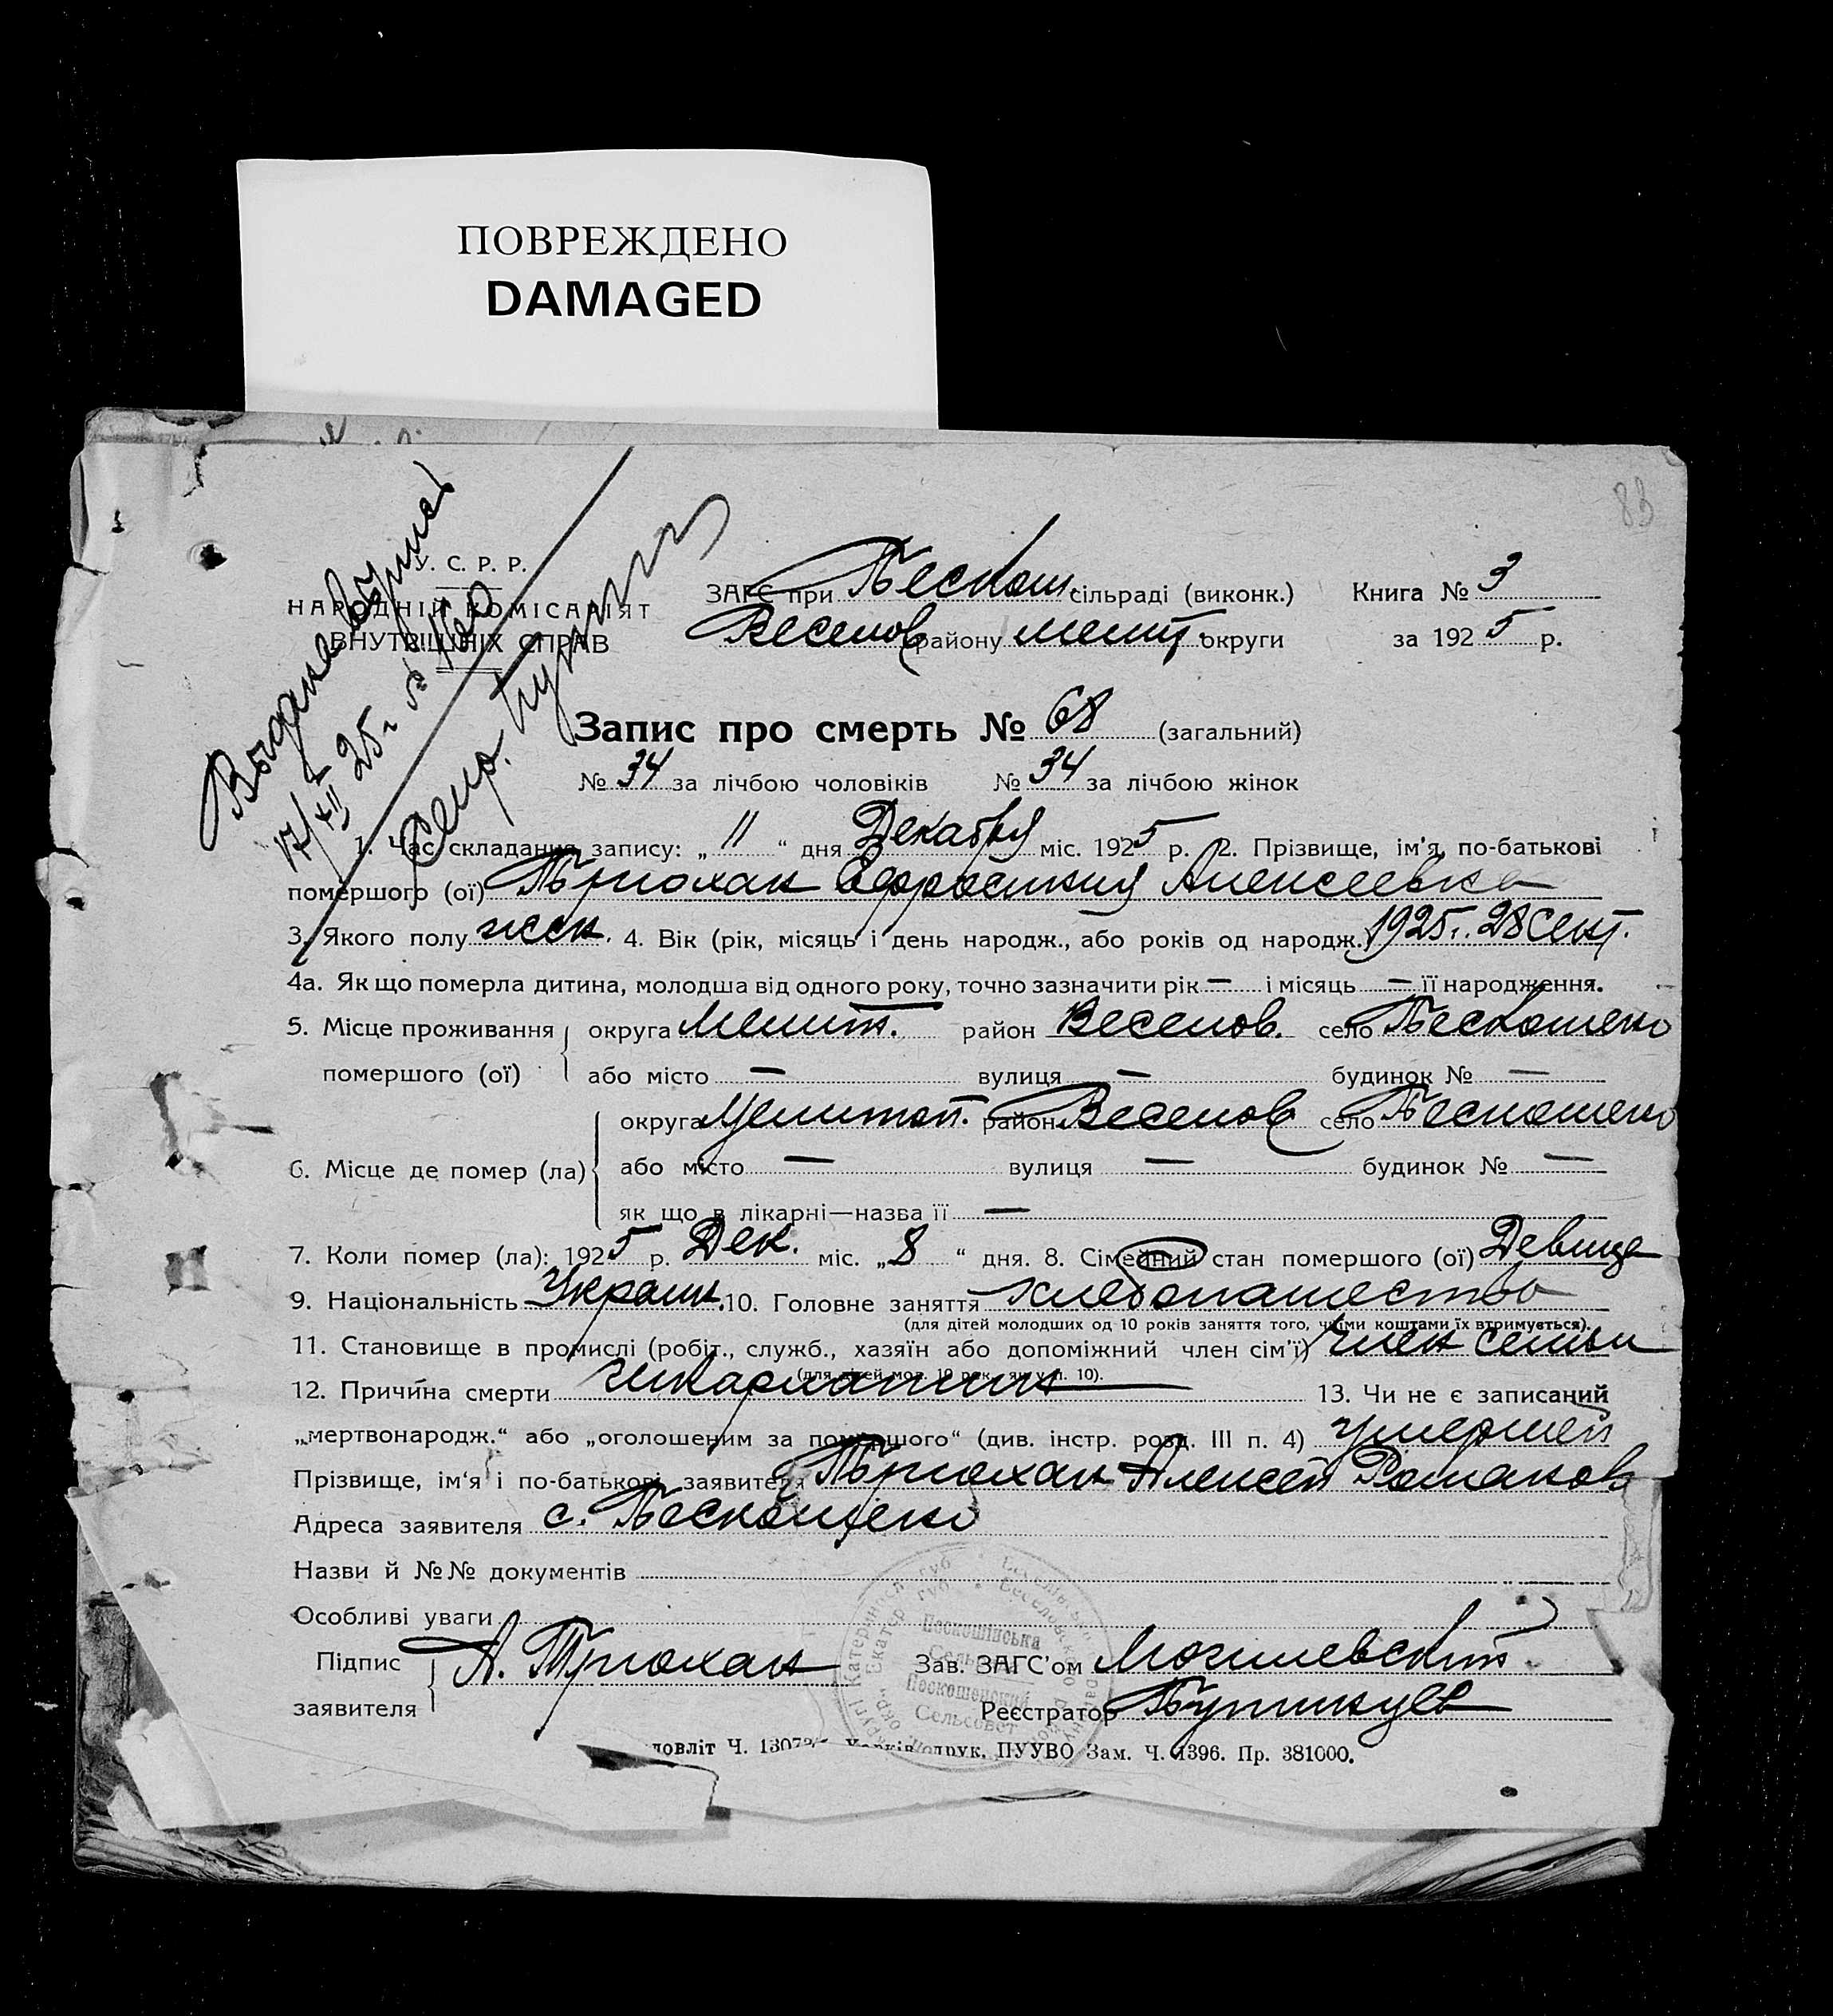 ПОВРЕЖДЕНО
DAMAGED
83
У. С. Р. Р.
НАРОДНІЙ КОМІСАРІЯТ
ВНУТРІШНІХ СПРАВ
17/XII 25 г
ЗАГС при Пескош. сільраді (виконк.) Книга № 3
Веселов району Мелит. округи за 1925 р.
Запис про смерть № 68 (загальний)
№ 34 за лічбою чоловіків № 34 за лічбою жінок
1. Час складання запису: „ 11 “ дня Декабря міс. 1925 р. 2. Прізвище, ім'я, по-батькові
помершого (ої) Трюхан Ефросиния Алексеевна
3. Якого полу жен. 4. Вік (рік, місяць і день народж., або років од народж.) 1925г. 28 Сент.
4а. Як що померла дитина, молодша від одного року, точно зазначити рік — і місяць — її народження.
5. Місце проживання округа Мелит. район Веселов. село Пескошено
помершого (ої) або місто — вулиця — будинок № —
округа Мелитоп. район Веселов село Пескошено
6. Місце де помер (ла) або місто — вулиця — будинок № —
як що в лікарні—назва її —
7. Коли помер (ла): 1925 р. Дек. міс. „ 8 “ дня. 8. Сімейний стан помершого (ої) Девица
9. Національність Украин. 10. Головне заняття хлебопашество
(для дітей молодших од 10 років заняття того, чиїми коштами їх втримується).
11. Становище в промислі (робіт., служб., хазяїн або допоміжний член сім'ї) член семьи
(для дітей мол. 10 рок., як у п. 10).
12. Причина смерти 13. Чи не є записаний
„мертвонародж.“ або „оголошеним за помершого“ (див. інстр. розд. III п. 4) умершей
Прізвище, ім'я і по-батькові заявителя Трюхан Алексей Романов
Адреса заявителя с. Пескошено
Назви й №№ документів
Особливі уваги
Підпис заявителя А. Трюхан Зав. ЗАГС'ом Могилевский
Реєстратор
Пескошінська
Сельрада
Пескошенский
Сельсовет
друк. ПУУВО Зам. Ч. 1396. Пр. 381000.